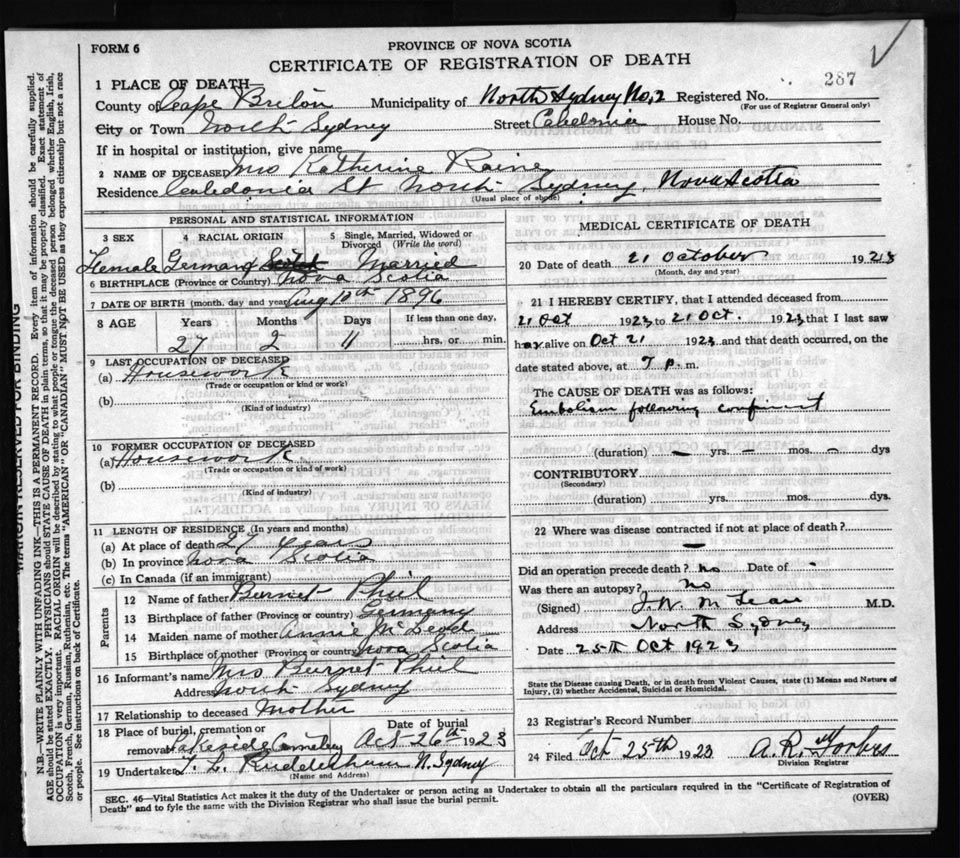 FORM 6
PROVINCE OF NOVA SCOTIA
CERTIFICATE OF REGISTRATION OF DEATH
287
1 PLACE OF DEATH
County of Cape Breton Municipality of North Sydney No. 2 Registered No.
(For use of Registrar General only)
City or Town North Sydney Street Caledonia House No.
If in hospital or institution, give name
2 NAME OF DECEASED Mrs Katherine
Residence Caledonia St North Sydney, Nova Scotia
(Usual place of abode)
PERSONAL AND STATISTICAL INFORMATION
3 SEX 4 RACIAL ORIGIN 5 Single, Married, Widowed or Divorced (Write the word)
Female German Scotch Married
6 BIRTHPLACE (Province or Country) Nova Scotia
7 DATE OF BIRTH (month, day and year) Aug 10th 1896
8 AGE Years Months Days If less than one day,
27 2 11 hrs. or min.
9 LAST OCCUPATION OF DECEASED
(a) Housework
(Trade or occupation or kind or work)
(b)
(Kind of industry)
10 FORMER OCCUPATION OF DECEASED
(a) Housework
(Trade or occupation or kind of work)
(b)
(Kind of industry)
11 LENGTH OF RESIDENCE (In years and months)
(a) At place of death 27 years
(b) In province Nova Scotia
(c) In Canada (if an immigrant)
Parents
12 Name of father Burnet Phiel
13 Birthplace of father (Province or country) Germany
14 Maiden name of mother Annie McLeod
15 Birthplace of mother (Province or country) Nova Scotia
16 Informant's name Mrs Burnet Phiel
Address North Sydney
17 Relationship to deceased Mother
18 Place of burial, cremation or removal Lakeside Cemetery Date of burial Oct 26th 1923
19 Undertaker T. L. N. Sydney
(Name and Address)
MEDICAL CERTIFICATE OF DEATH
20 Date of death 21 October 1923
(Month, day and year)
21 I HEREBY CERTIFY, that I attended deceased from
21 Oct 1923 to 21 Oct. 1923 that I last saw
her alive on Oct 21 1923 and that death occurred, on the
date stated above, at 7 p. m.
The CAUSE OF DEATH was as follows:
Embolism following confinement
(duration) — yrs. — mos. — dys
CONTRIBUTORY
(Secondary)
(duration) yrs. mos. dys.
22 Where was disease contracted if not at place of death?
—
Did an operation precede death? no Date of
Was there an autopsy? no
(Signed) J. W. McLean M.D.
Address North Sydney
Date 25th Oct 1923
State the Disease causing Death, or in death from Violent Causes, state (1) Means and Nature of
Injury, (2) whether Accidental, Suicidal or Homicidal.
23 Registrar's Record Number
24 Filed Oct 25th 1923 A. R. Forbes
Division Registrar
SEC. 46—Vital Statistics Act makes it the duty of the Undertaker or person acting as Undertaker to obtain all the particulars required in the "Certificate of Registration of
Death" and to fyle the same with the Division Registrar who shall issue the burial permit.
(OVER)
MARGIN RESERVED FOR BINDING
N.B.—WRITE PLAINLY WITH UNFADING INK—THIS IS A PERMANENT RECORD. Every item of information should be carefully supplied.
AGE should be stated EXACTLY. PHYSICIANS should STATE CAUSE OF DEATH in plain terms, so that it may be properly classified. Exact statement of
OCCUPATION is very important. RACIAL ORIGIN will be described by stating to what people or tongue the deceased person belonged whether English, Irish,
Scotch, French, German, Russian, Ruthenian, etc. The terms "AMERICAN" or "CANADIAN" MUST NOT BE USED as they express citizenship but not a race
or people. See instructions on back of Certificate.